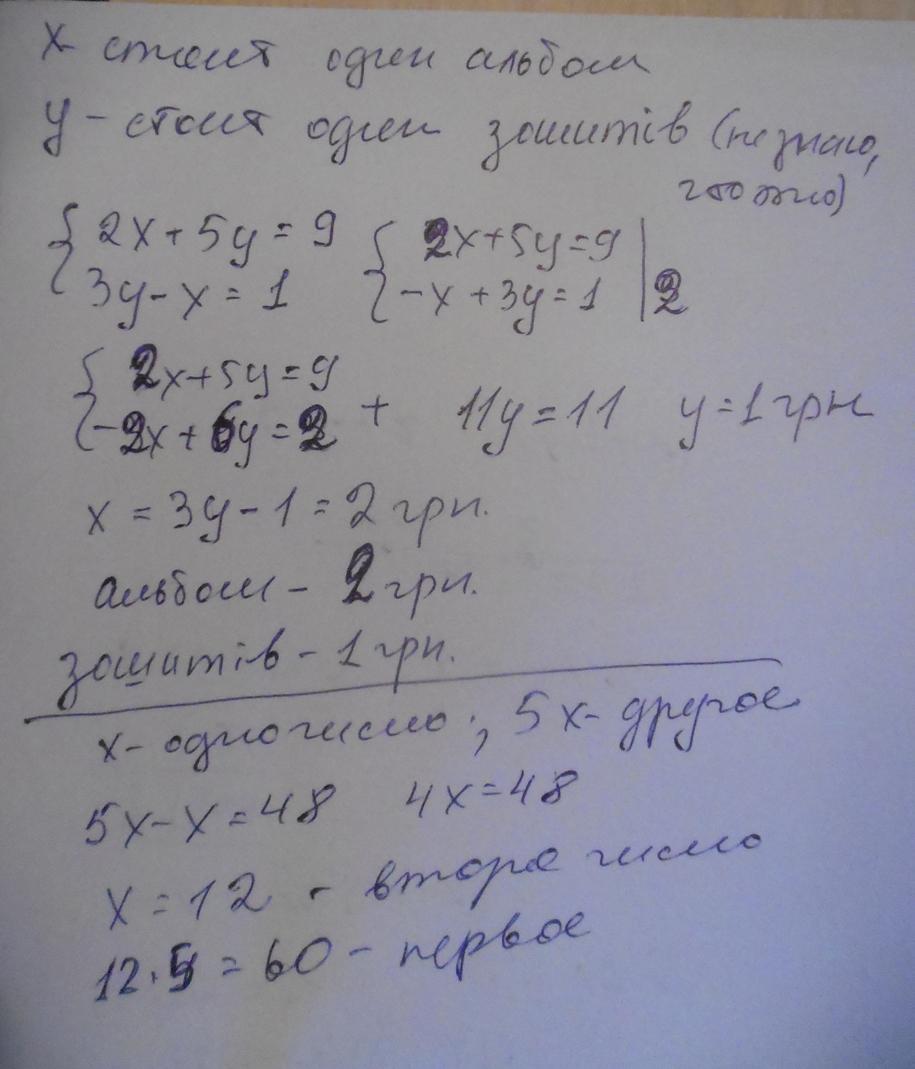 x стоит один альбом
y – стоит один зошитів (не знаю,
что это)
{ 2x + 5y = 9 { 2x + 5y = 9 |
3y – x = 1 – x + 3y = 1 | 2
{ 2x + 5y = 9
– 2x + 6y = 2 + 11y = 11 y = 1 грн
x = 3y – 1 = 2 грн.
альбом – 2 грн.
зошитів – 1 грн.
x – одно число ; 5x – другое
5x – x = 48 4x = 48
x = 12 – второе число
12 · 5 = 60 – первое